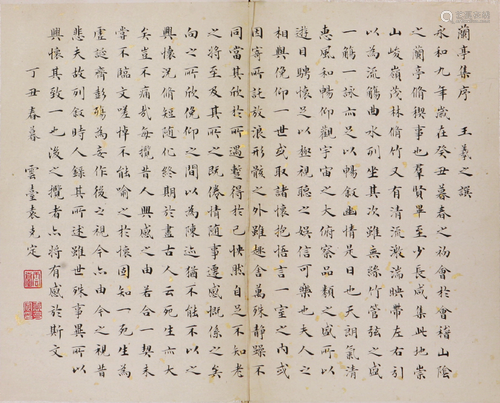 蘭亭集序 王羲之撰
永和九年歲在癸丑暮春之初會於會稽山陰
之蘭亭脩禊事也羣賢畢至少長咸集此地崇
山峻嶺茂林脩竹又有清流激湍映帶左右引
以為流觴曲水列坐其次雖無絲竹管弦之盛
一觴一詠亦足以暢叙幽情是日也天朗氣清
惠風和暢仰觀宇宙之大俯察品類之盛所以
遊目騁懷足以極視聽之娛信可樂也夫人之
相與俛仰一世或取諸懷抱悟言一室之內或
因寄所託放浪形骸之外雖趣舍萬殊靜躁不
同當其欣於所遇暫得於己快然自足不知老
之將至及其所之既倦情隨事遷感慨係之矣
向之所欣俛仰之間以為陳迹猶不能不以之
興懷況脩短隨化終期於盡古人云死生亦大
矣豈不痛哉每攬昔人興感之由若合一契未
嘗不臨文嗟悼不能喻之於懷固知一死生為
虛誕齊彭殤為妄作後之視今亦由今之視昔
悲夫故列叙時人錄其所述雖世殊事異所以
興懷其致一也後之攬者亦將有感於斯文
丁丑春暮 雲臺袁克定